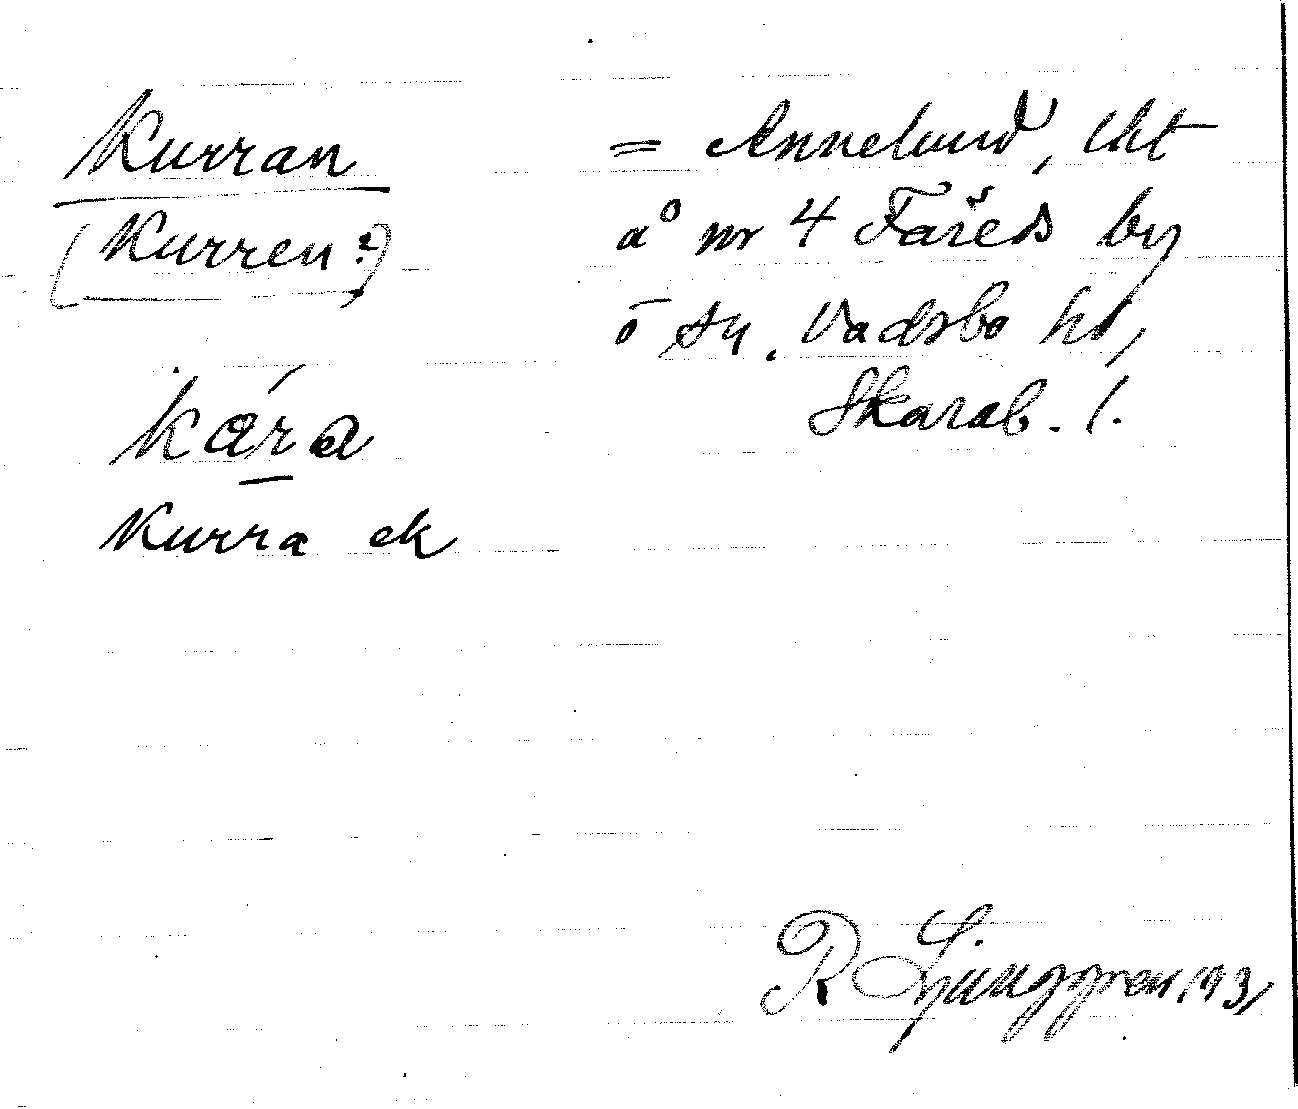 Kurran
(Kurren?)
kára
Kurra ek
= Annelund, lht
å nr 4 Fåreds by
o sn. Vadsbo hd,
Skarab. l.
R Ljunggren 1931